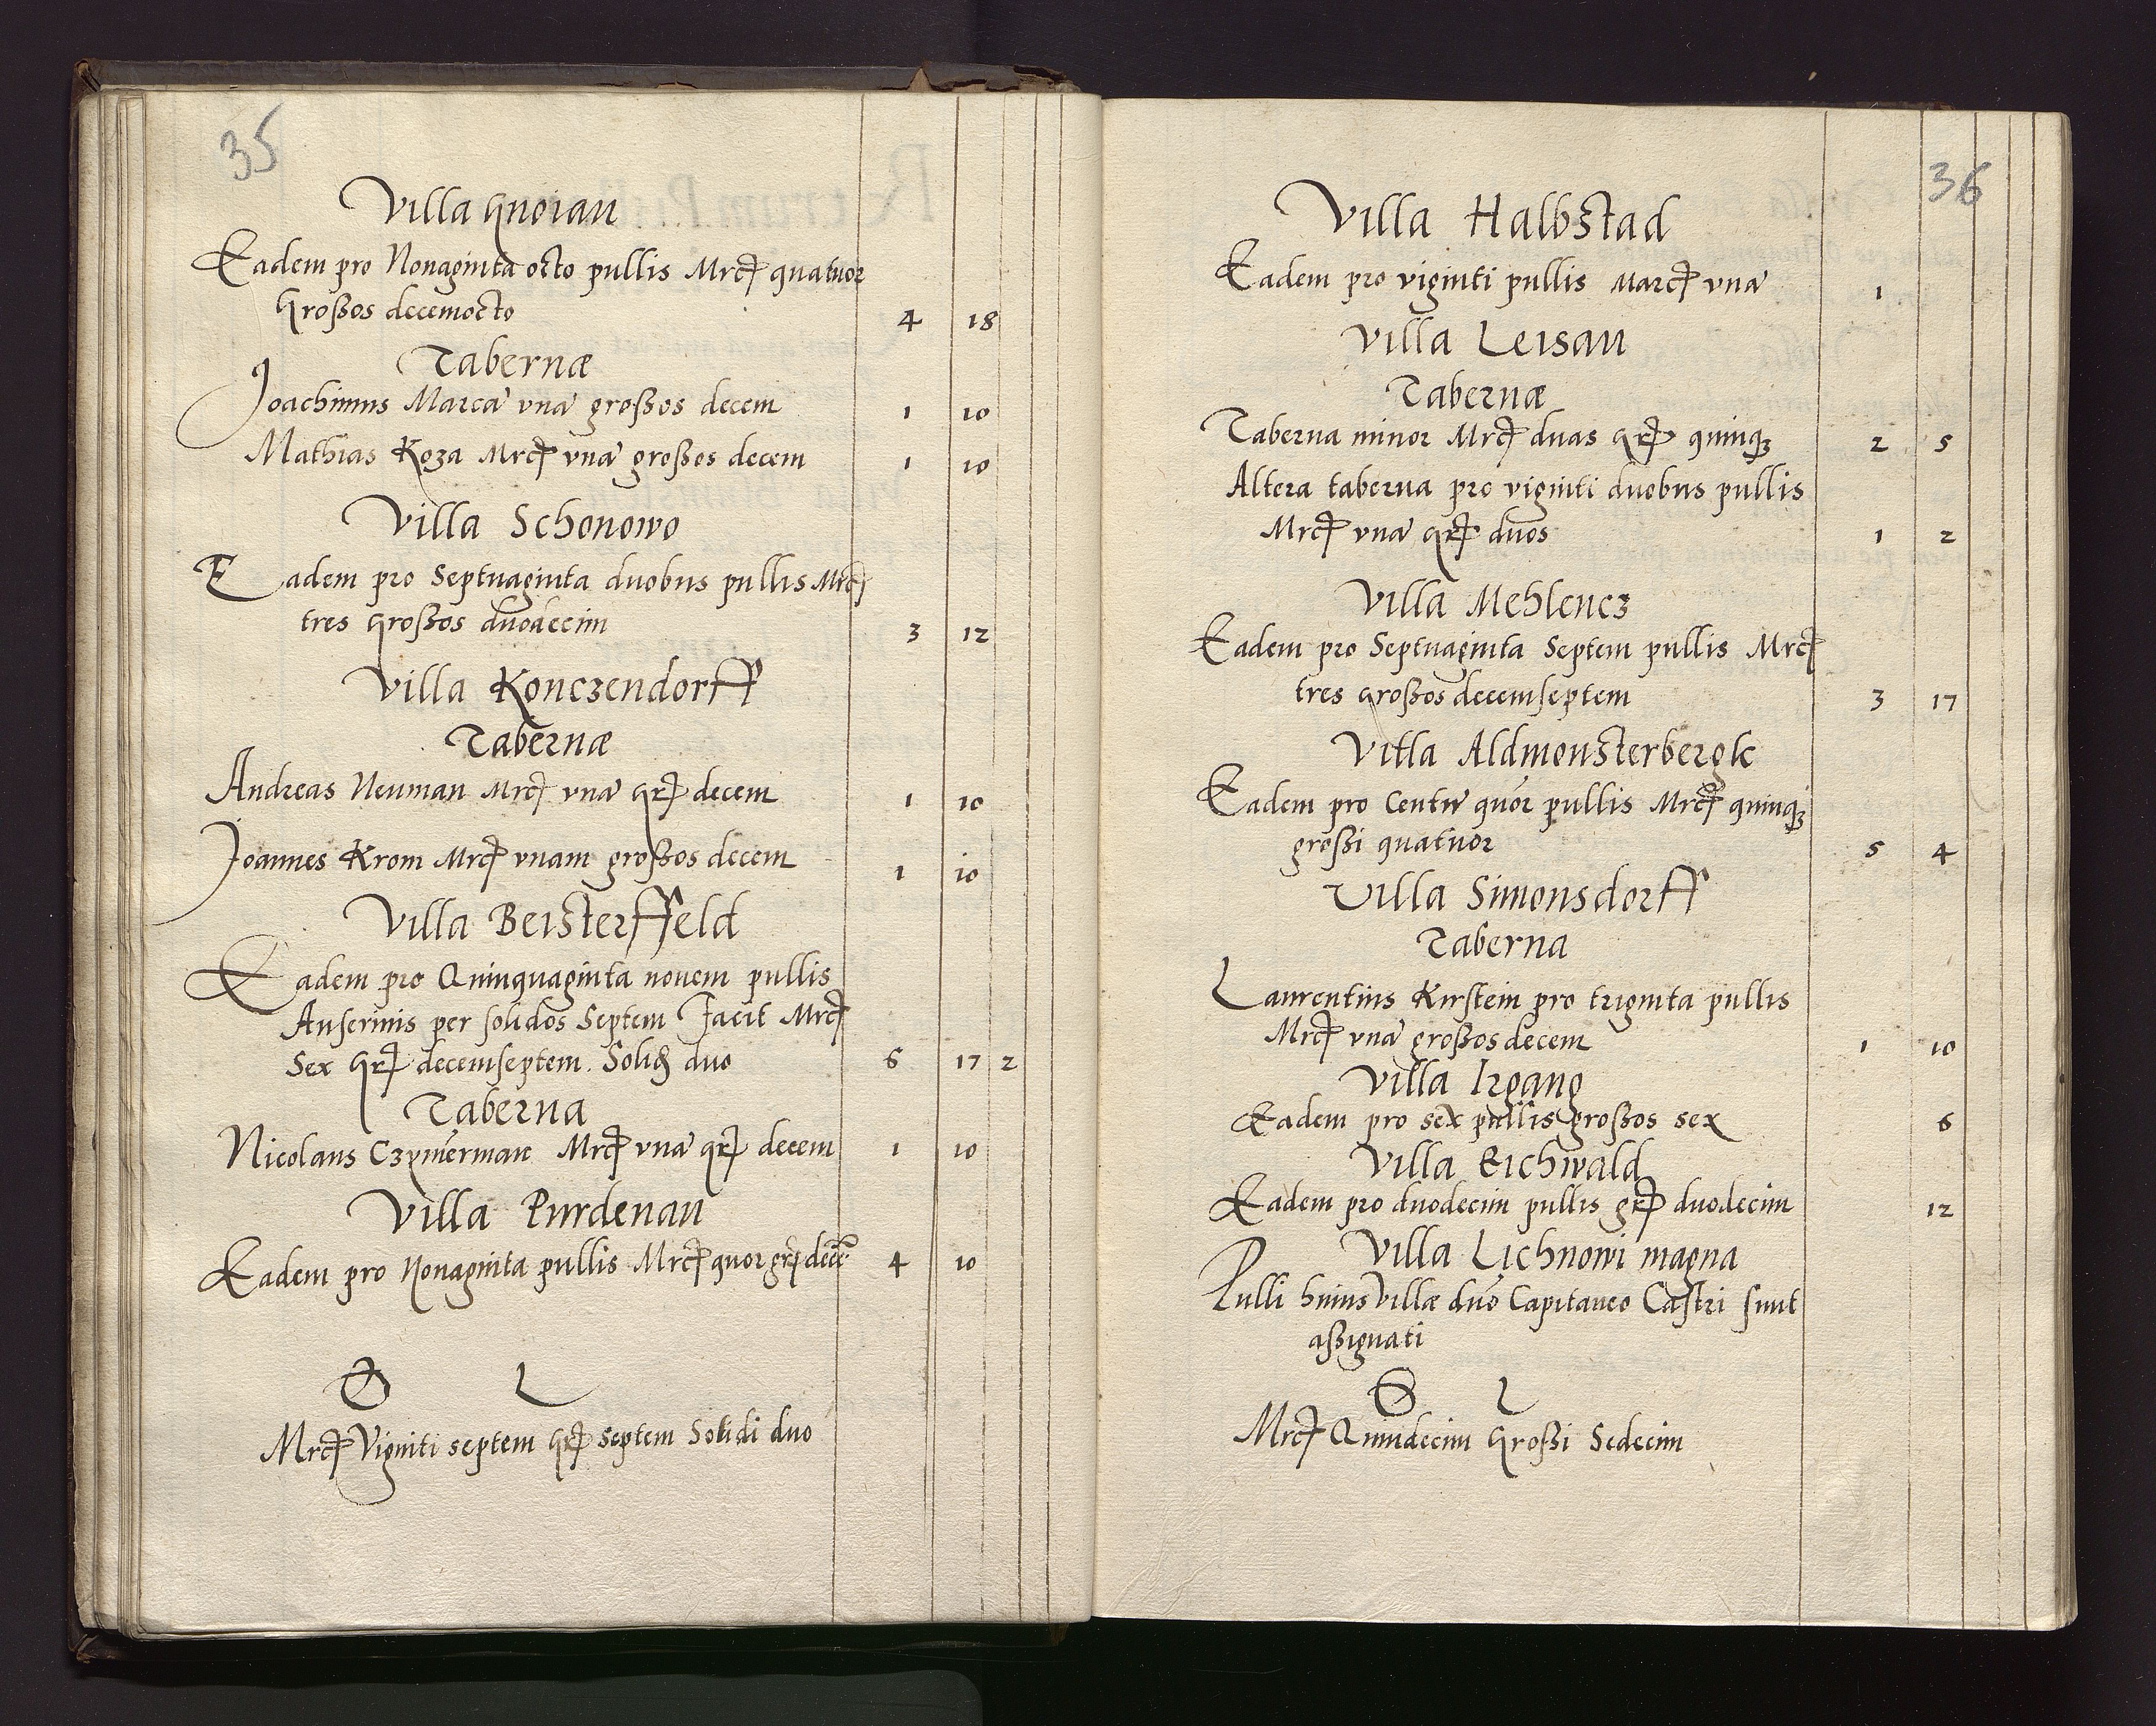 35
Villa Gnoian
Eadem pro Nonaginta octo pullis Mrc quatuor
Großos decemocto 4 18
Tabernæ
Joachimus Marcã vnã großos decem 1 10
Mathias Koza Mrc vnã großos decem 1 10
Villa Schonowo
Eadem pro Septuaginta duobus pullis Mrc
tres Großos duodecim 3 12
Villa Konczendorff
Tabernæ
Andreas Neuman Mrc vnã Gr decem 1 10
Joannes Krom Mrc vnam großos decem 1 10
Villa Beisterffeld
Eadem pro Quinquaginta nouem pullis
Anserinis per solidos Septem Facit Mrc
Sex Gr decemseptem. Solid duo 6 17 2
Taberna
Nicolaus Czymerman Mrc vnã gr decem 1 10
Villa Purdenau
Eadem pro Nonaginta pullis Mrc quor gr decẽ 4 10
L
Mrc Viginti septem Gr septem Solidi duo
36
Villa Halbstad
Eadem pro viginti pullis Marc vnã 1
Villa Leisau
Tabernæ
Taberna minor Mrc duas Gr quinqꝫ 2 5
Altera taberna pro viginti duobus pullis
Mrc vnã Gr duos 1 2
Villa Mehlencz
Eadem pro Septuaginta Septem pullis Mrc
tres Großos decemseptem 3 17
Villa Aldmonsterbergk
Eadem pro Centũ quor pullis Mrc quinqꝫ
großi quatuor 5 4
Villa Simonsdorff
Taberna
Laurentius Kirstein pro triginta pullis
Mrc vnã großos decem 1 10
Villa Irgang
Eadem pro sex pullis großos sex 6
Villa Eichwald
Eadem pro duodecim pullis gr duodecim 12
Villa Lichnowi magna
Pulli huius Villæ duo Capitaneo Castri sunt
aßignati
L
Mrc Quindecim Großi Sedecim